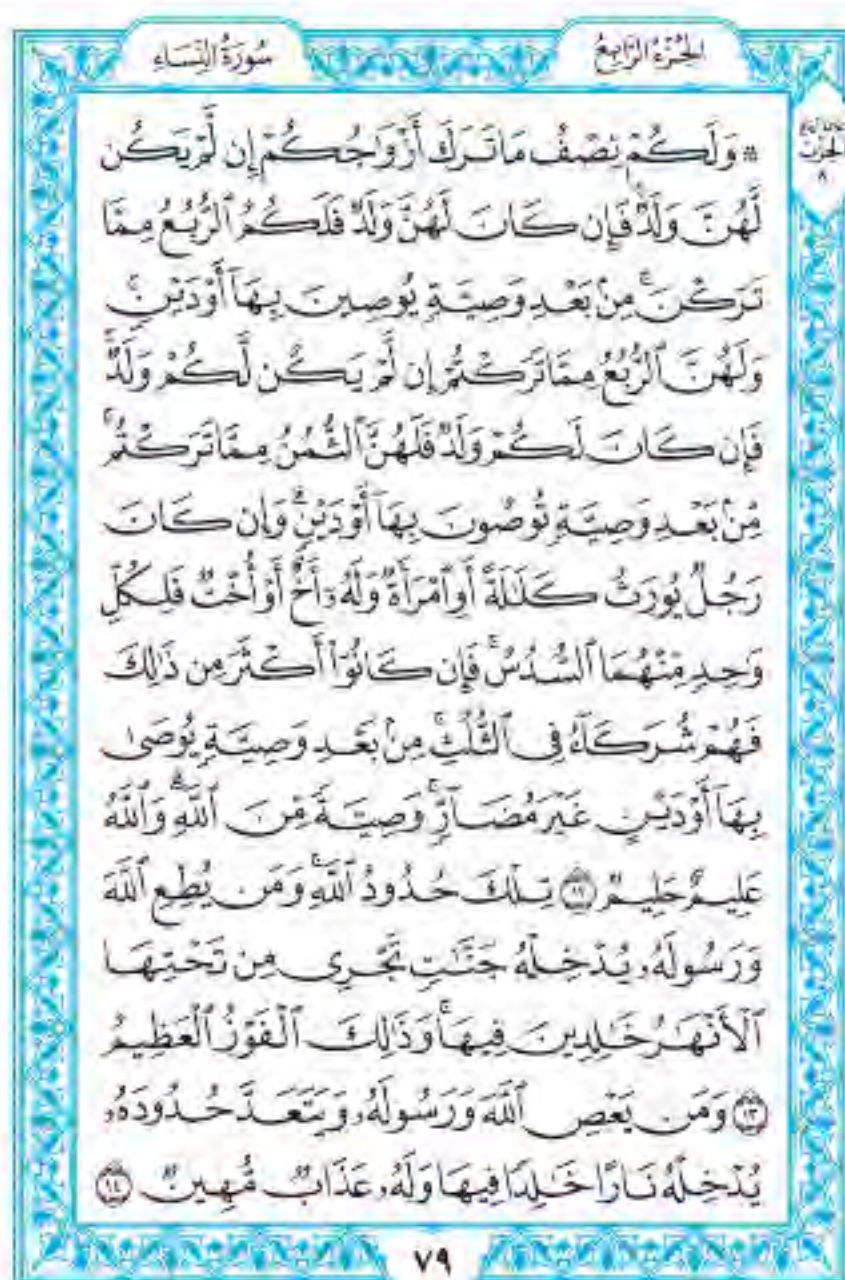 الجُزْءُ الرَّابِعُ
سُورَةُ النِّسَاءِ
الحِزْبُ
٨
۞ وَلَكُمْ نِصْفُ مَا تَرَكَ أَزْوَٰجُكُمْ إِن لَّمْ يَكُن
لَّهُنَّ وَلَدٌۚ فَإِن كَانَ لَهُنَّ وَلَدٌ فَلَكُمُ ٱلرُّبُعُ مِمَّا
تَرَكْنَۚ مِنۢ بَعْدِ وَصِيَّةٍ يُوصِينَ بِهَآ أَوْ دَيْنٍۚ
وَلَهُنَّ ٱلرُّبُعُ مِمَّا تَرَكْتُمْ إِن لَّمْ يَكُن لَّكُمْ وَلَدٌۚ
فَإِن كَانَ لَكُمْ وَلَدٌ فَلَهُنَّ ٱلثُّمُنُ مِمَّا تَرَكْتُمۚ
مِّنۢ بَعْدِ وَصِيَّةٍ تُوصُونَ بِهَآ أَوْ دَيْنٍۗ وَإِن كَانَ
رَجُلٌ يُورَثُ كَلَٰلَةً أَوِ ٱمْرَأَةٌ وَلَهُۥٓ أَخٌ أَوْ أُخْتٌ فَلِكُلِّ
وَٰحِدٍ مِّنْهُمَا ٱلسُّدُسُۚ فَإِن كَانُوٓا۟ أَكْثَرَ مِن ذَٰلِكَ
فَهُمْ شُرَكَآءُ فِى ٱلثُّلُثِۚ مِنۢ بَعْدِ وَصِيَّةٍ يُوصَىٰ
بِهَآ أَوْ دَيْنٍ غَيْرَ مُضَآرٍّۚ وَصِيَّةً مِّنَ ٱللَّهِۗ وَٱللَّهُ
عَلِيمٌ حَلِيمٌ ١٢ تِلْكَ حُدُودُ ٱللَّهِۚ وَمَن يُطِعِ ٱللَّهَ
وَرَسُولَهُۥ يُدْخِلْهُ جَنَّٰتٍ تَجْرِى مِن تَحْتِهَا
ٱلْأَنْهَٰرُ خَٰلِدِينَ فِيهَاۚ وَذَٰلِكَ ٱلْفَوْزُ ٱلْعَظِيمُ
١٣ وَمَن يَعْصِ ٱللَّهَ وَرَسُولَهُۥ وَيَتَعَدَّ حُدُودَهُۥ
يُدْخِلْهُ نَارًا خَٰلِدًا فِيهَا وَلَهُۥ عَذَابٌ مُّهِينٌ ١٤
٧٩